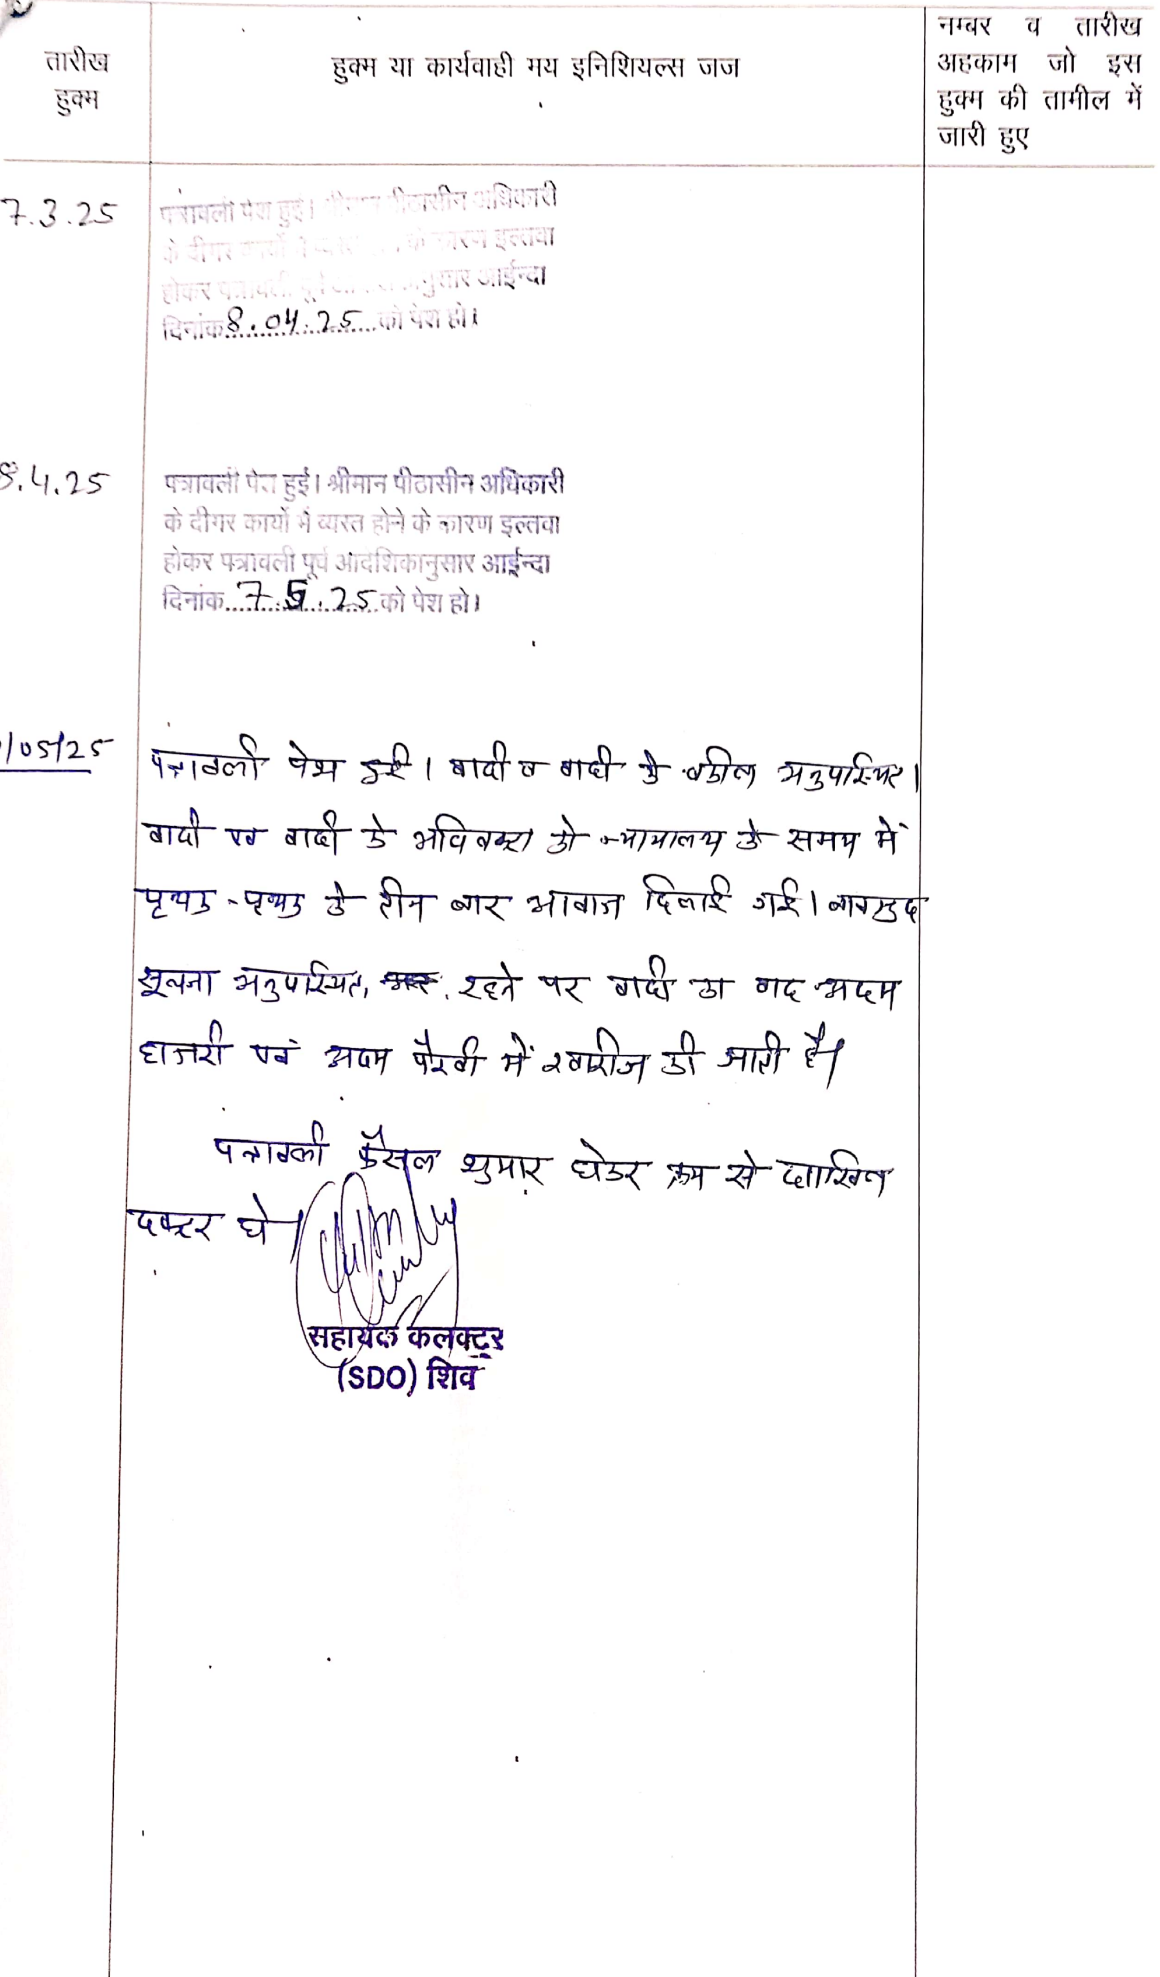 तारीख
हुक्म
हुक्म या कार्यवाही मय इनिशियल्स जज
नम्बर व तारीख
अहकाम जो इस
हुक्म की तामील में
जारी हुए
7.3.25
पत्रावली पेश हुई। श्रीमान पीठासीन अधिकारी
के दीगर कार्यो में के कारण इल्तवा
होकर पत्रावली पूर्व आईन्दा
दिनांक 8.04.25 को पेश हो।
8.4.25
पत्रावली पेश हुई। श्रीमान पीठासीन अधिकारी
के दीगर कार्यो में व्यस्त होने के कारण इल्तवा
होकर पत्रावली पूर्व आदेशिकानुसार आईन्दा
दिनांक 7.5.25 को पेश हो।
/05/25
पत्रावली पेश हुई। वादी व वादी के वकील अनुपस्थित।
वादी एवं वादी के अधिवक्ता को न्यायालय के समय में
पृथक-पृथक के तीन बार आवाज दिलाई गई। बावजूद
सूचना अनुपस्थित रहने पर वादी का वाद अदम
हाजरी एवं अदम पैरवी में खारीज की जाती है।
पत्रावली फैसल शुमार होकर क्रम से दाखिल
दफ्तर हो।
सहायक कलक्टर
(SDO) शिव